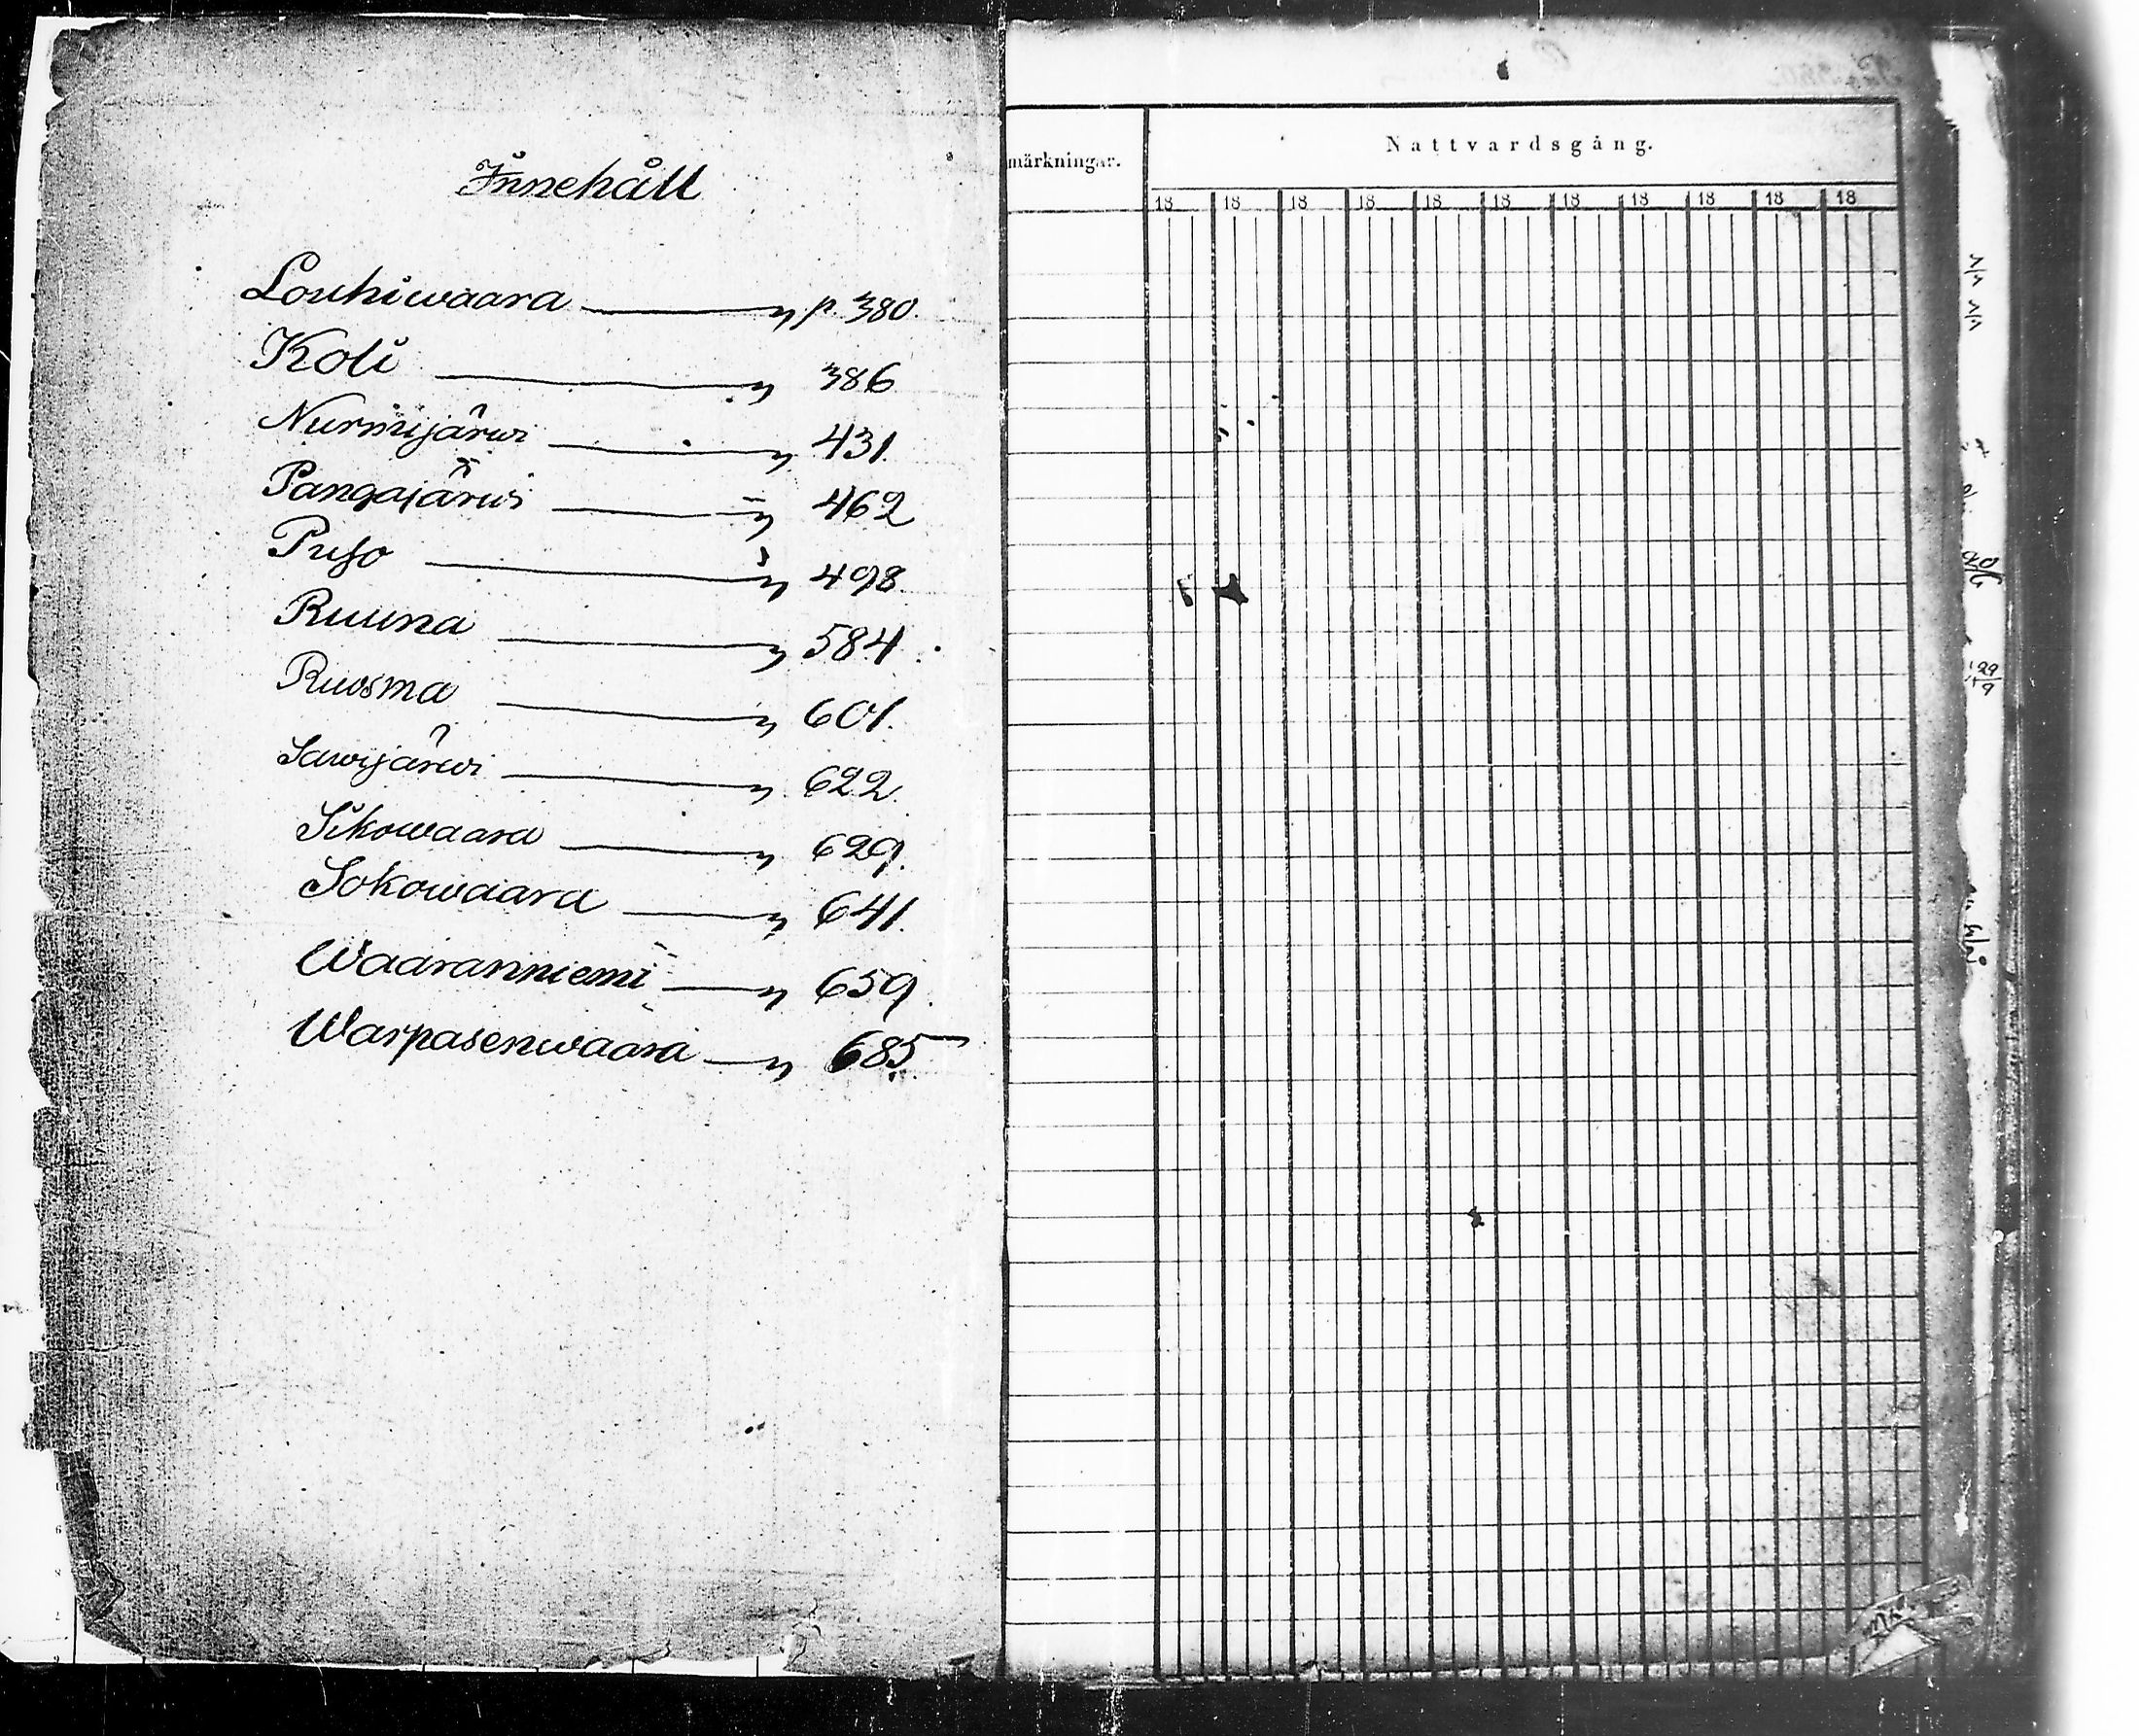 Innehåll
Louhiwaara — " p. 380.
Koli — " 386
Nurmijärwi — " 431.
Pangajärwi — " 462
Puso — " 498.
Ruuna — " 584.
Ruosma — " 601.
Sawijärwi — " 622.
Sikowaara — " 629.
Sokowaara — " 641.
Waaranniemi — " 659.
Warpasenwaara — " 685
märkningar.
Nattvardsgång.
18 18 18 18 18 18 18 18 18 18 18